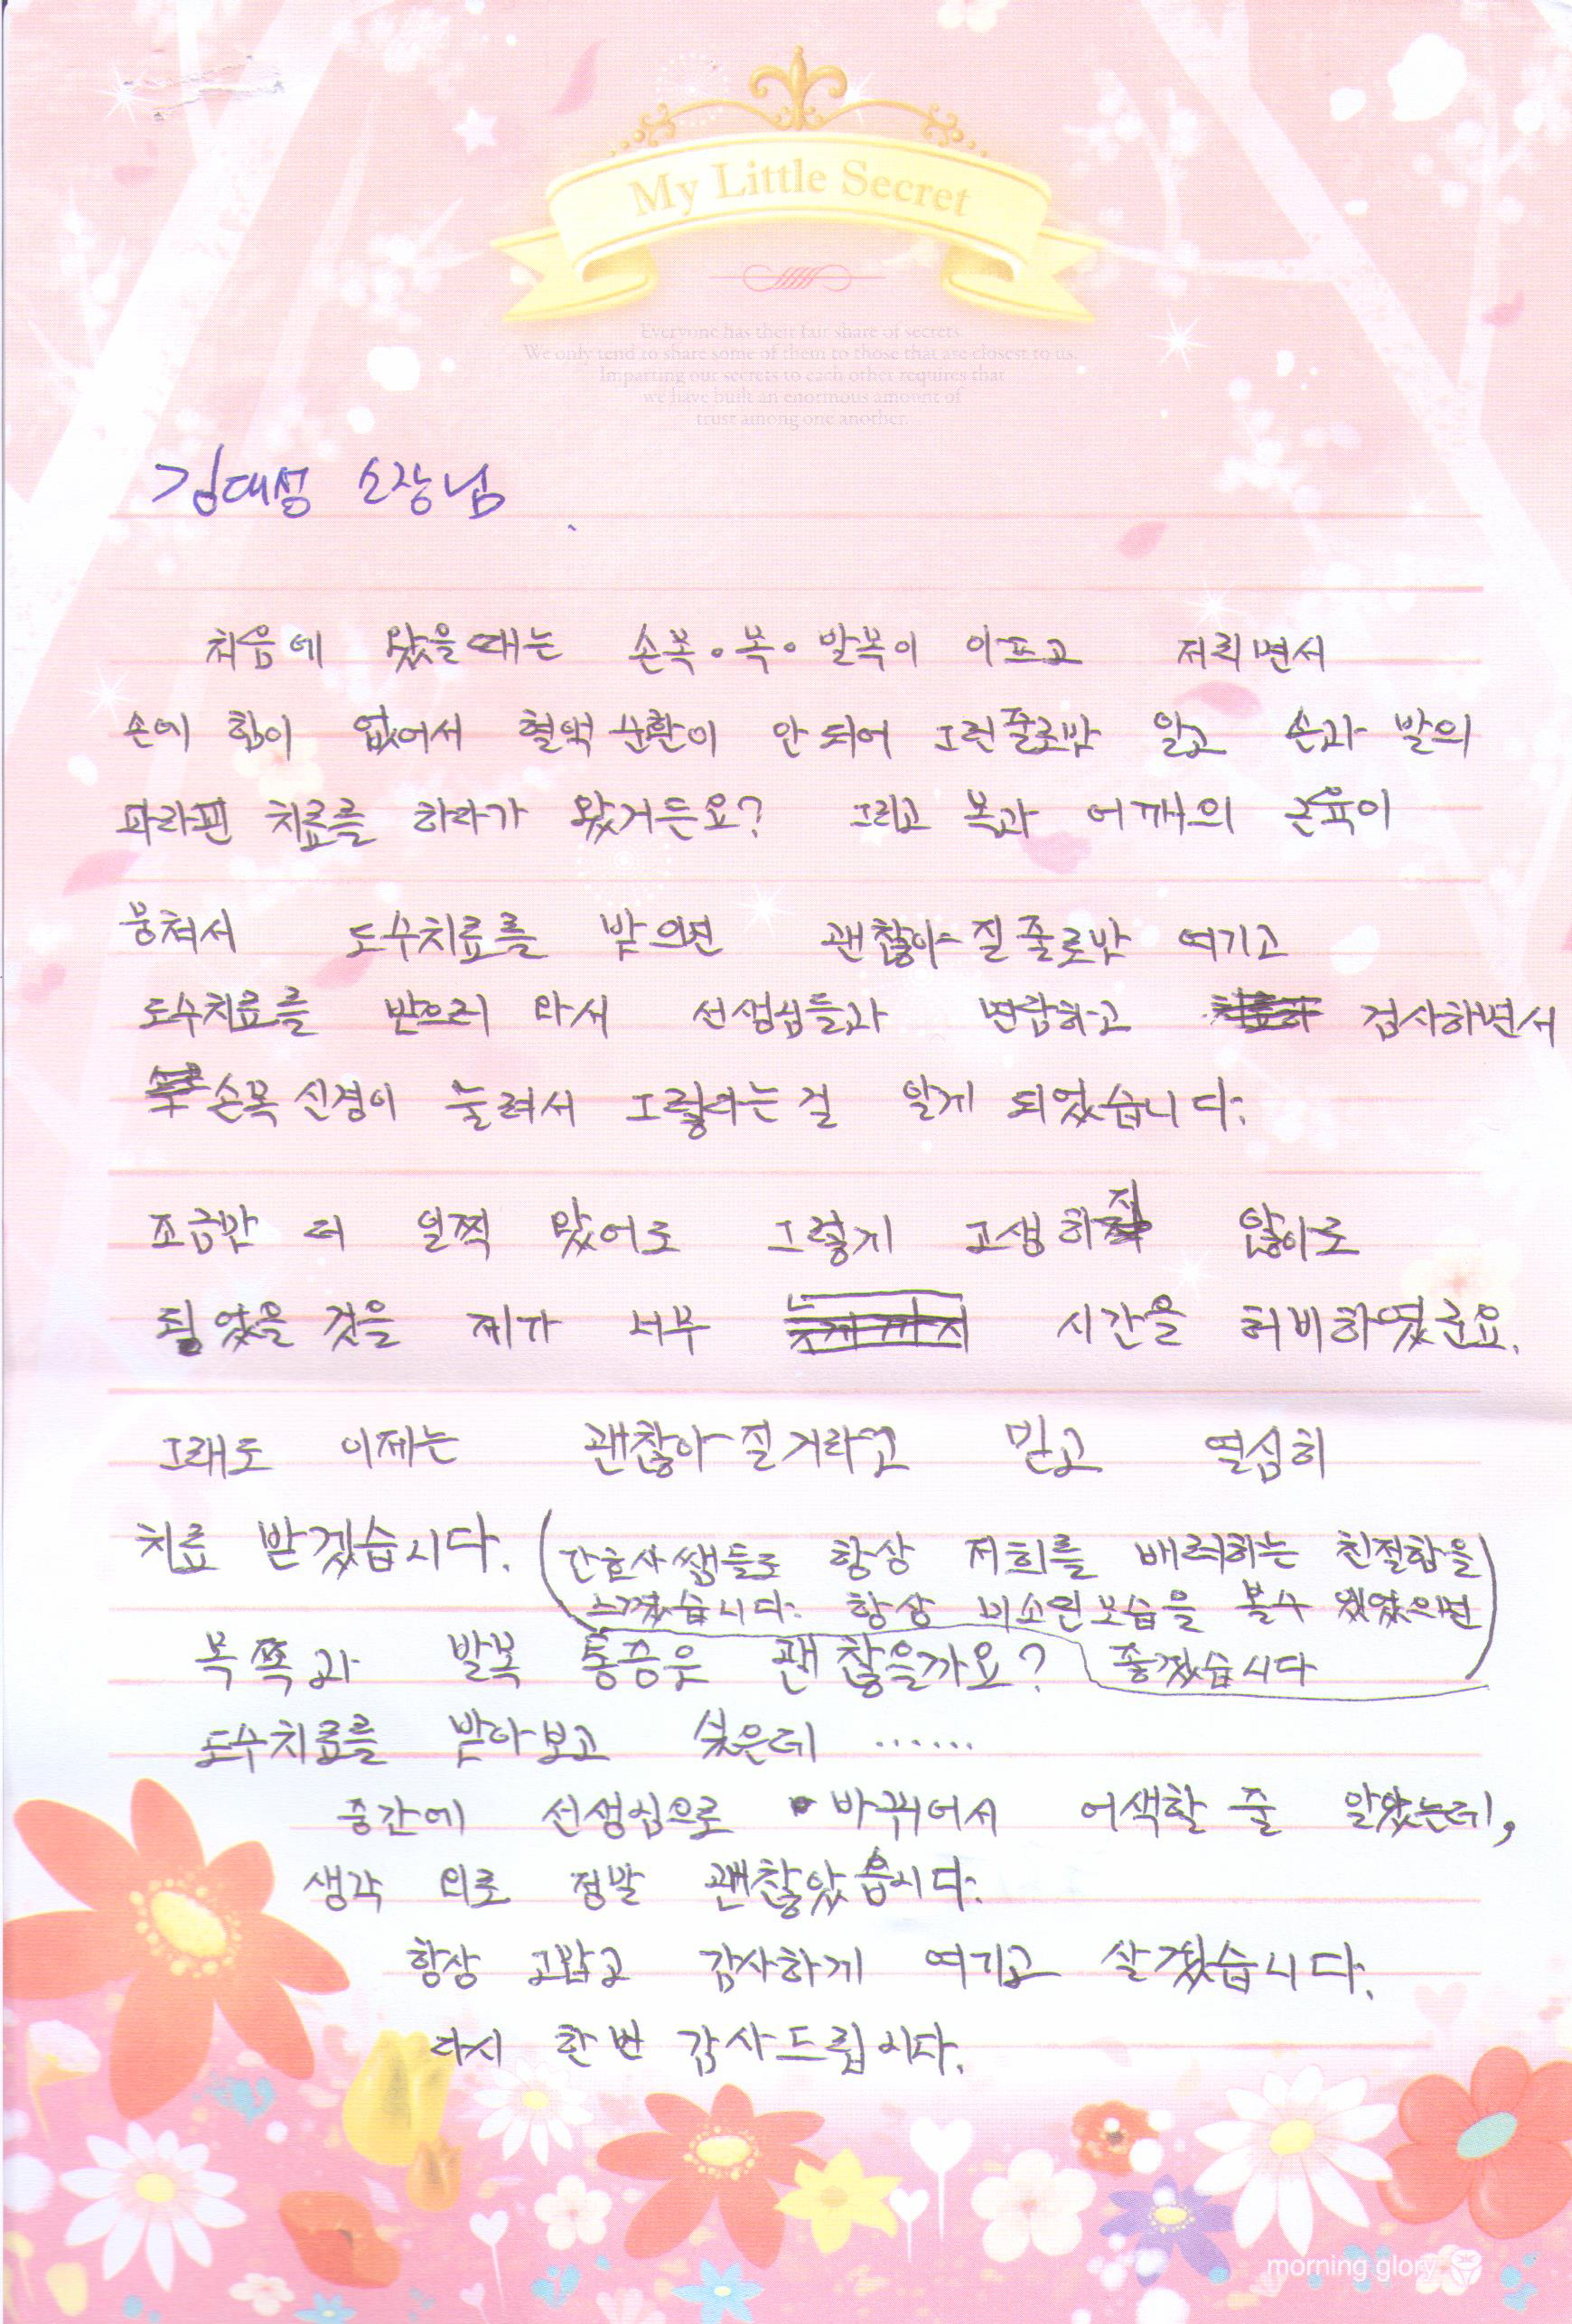 My Little Secret
Everyone has their fair share of secrets.
We only tend to share some of them to those that are closest to us.
Imparting our secrets to each other requires that
we have built an enormous amount of
trust among one another.
김대성 소장님
처음에 왔을때는 손목·목·발목이 아프고 저리면서
손에 힘이 없어서 혈액 순환이 안 되어 그런줄로만 알고 손과 발의
파라핀 치료를 하라가 왔거든요? 그리고 목과 어깨의 근육이
뭉쳐서 도수치료를 받으면 괜찮아질줄로만 여기고
도수치료를 받으러 와서 선생님들과 면담하고 검사하면서
손목 신경이 눌려서 그렇다는걸 알게 되었습니다.
조금만 더 일찍 왔어도 그렇게 고생하지 않아도
될었을 것을 제가 너무 시간을 허비하였군요.
그래도 이제는 괜찮아질거라고 믿고 열심히
치료 받겠습니다. (간호사쌤들도 항상 저희를 배려하는 친절함을
느꼈습니다. 항상 미소띤모습을 볼수 있었으면
좋겠습니다)
목쪽과 발목 통증은 괜찮을까요?
도수치료를 받아보고 싶은데 ......
중간에 선생님으로 바뀌어서 어색할 줄 알았는데,
생각 외로 정말 괜찮았습니다.
항상 고맙고 감사하게 여기고 살겠습니다.
다시 한번 감사드립니다.
morning glory